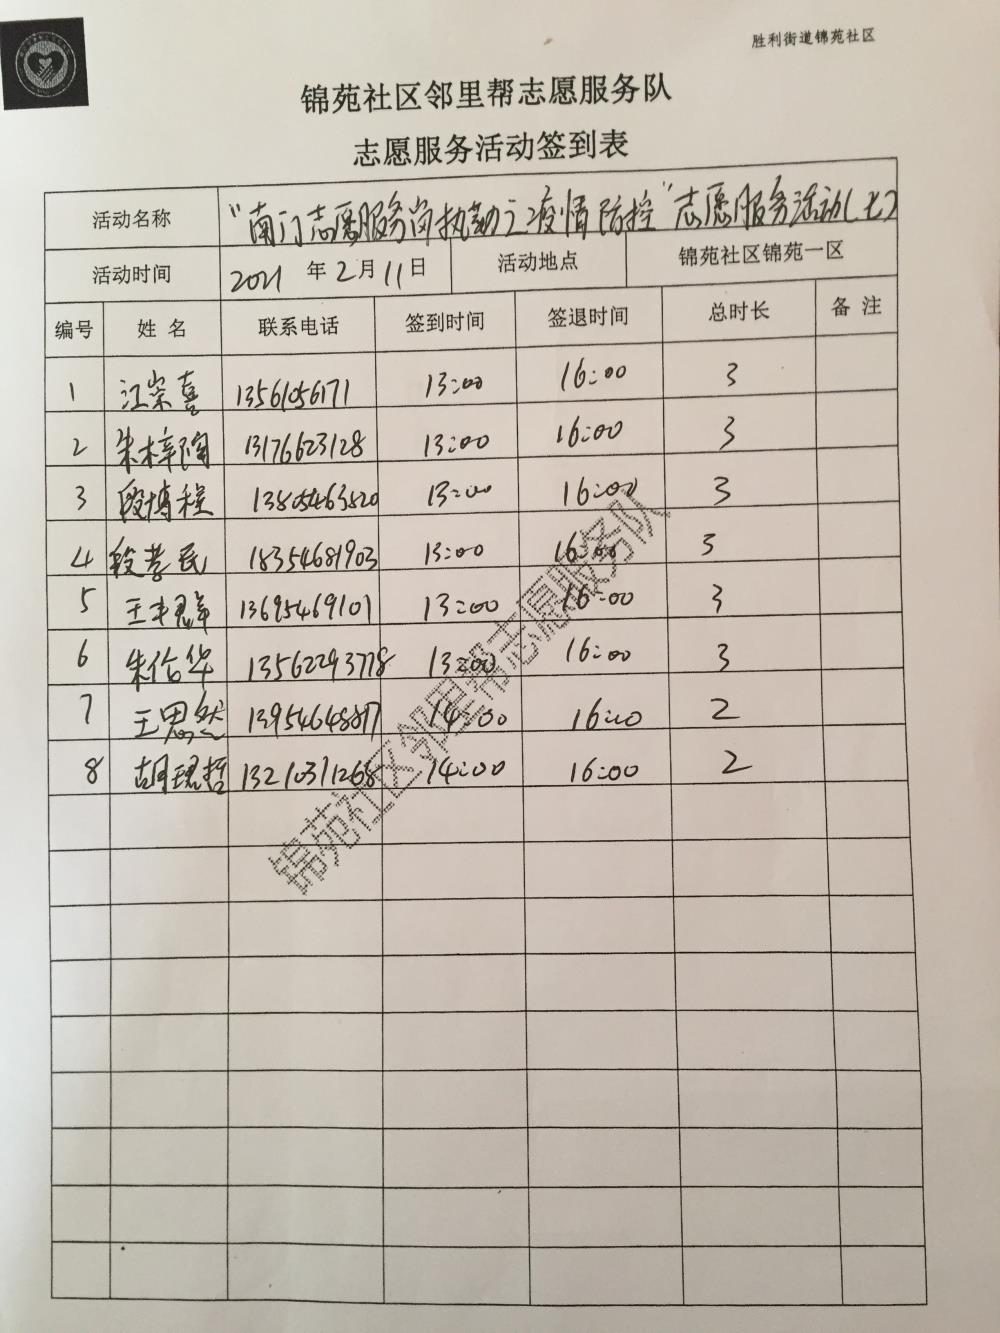 胜利街道锦苑社区
锦苑社区邻里帮志愿服务队
志愿服务活动签到表
活动名称 "南门志愿服务岗执勤之疫情防控"志愿服务活动(七)
活动时间 2021 年 2 月 11 日 活动地点 锦苑社区锦苑一区
编号 姓 名 联系电话 签到时间 签退时间 总时长 备 注
1 江崇喜 13561056171 13:00 16:00 3
2 朱梓陶 13176623128 13:00 16:00 3
3 段博程 13805463820 13:00 16:00 3
4 段孝民 18354681903 13:00 16:00 3
5 13695469101 13:00 16:00 3
6 朱伯华 13562293778 13:00 16:00 3
7 王思然 14:00 16:00 2
8 胡琨哲 13210311268 14:00 16:00 2
锦苑社区邻里帮志愿服务队